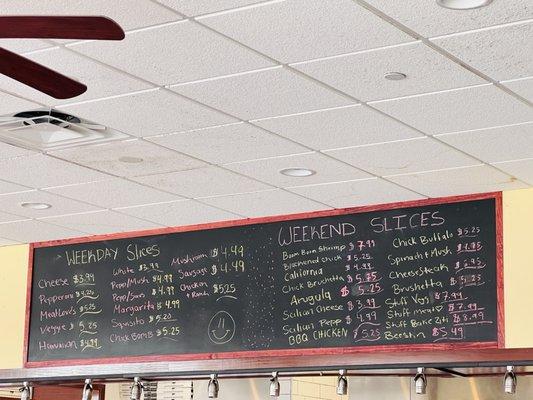 WEEKDAY SLICES
CHEESE $3.99
Pepperoni $5.25
Meat Lovers $5.25
Veggie $5.25
Hawaiian $4.99
White $3.99
Pep/Mush $4.99
Pep/Saus $4.99
Margarita $4.99
$5.20
Chick $5.25
Mushroom $4.49
Sausage $4.49
Chicken + Ranch $5.25
WEEKEND SLICES
Bam Bam Shrimp $7.99
Blackened Chick $5.25
California $4.99
Chick Bruschetta $5.75
Arugula $5.25
Sicilian Cheese $3.99
Sicilian Pepp $4.99
BBQ CHICKEN $5.25
Chick Buffalo $5.25
Spinach + Mush $4.75
Cheesesteak $5.95
Stuff Veg $7.99
Stuff meat $7.99
Stuff Bake Ziti $8.99
$5.49